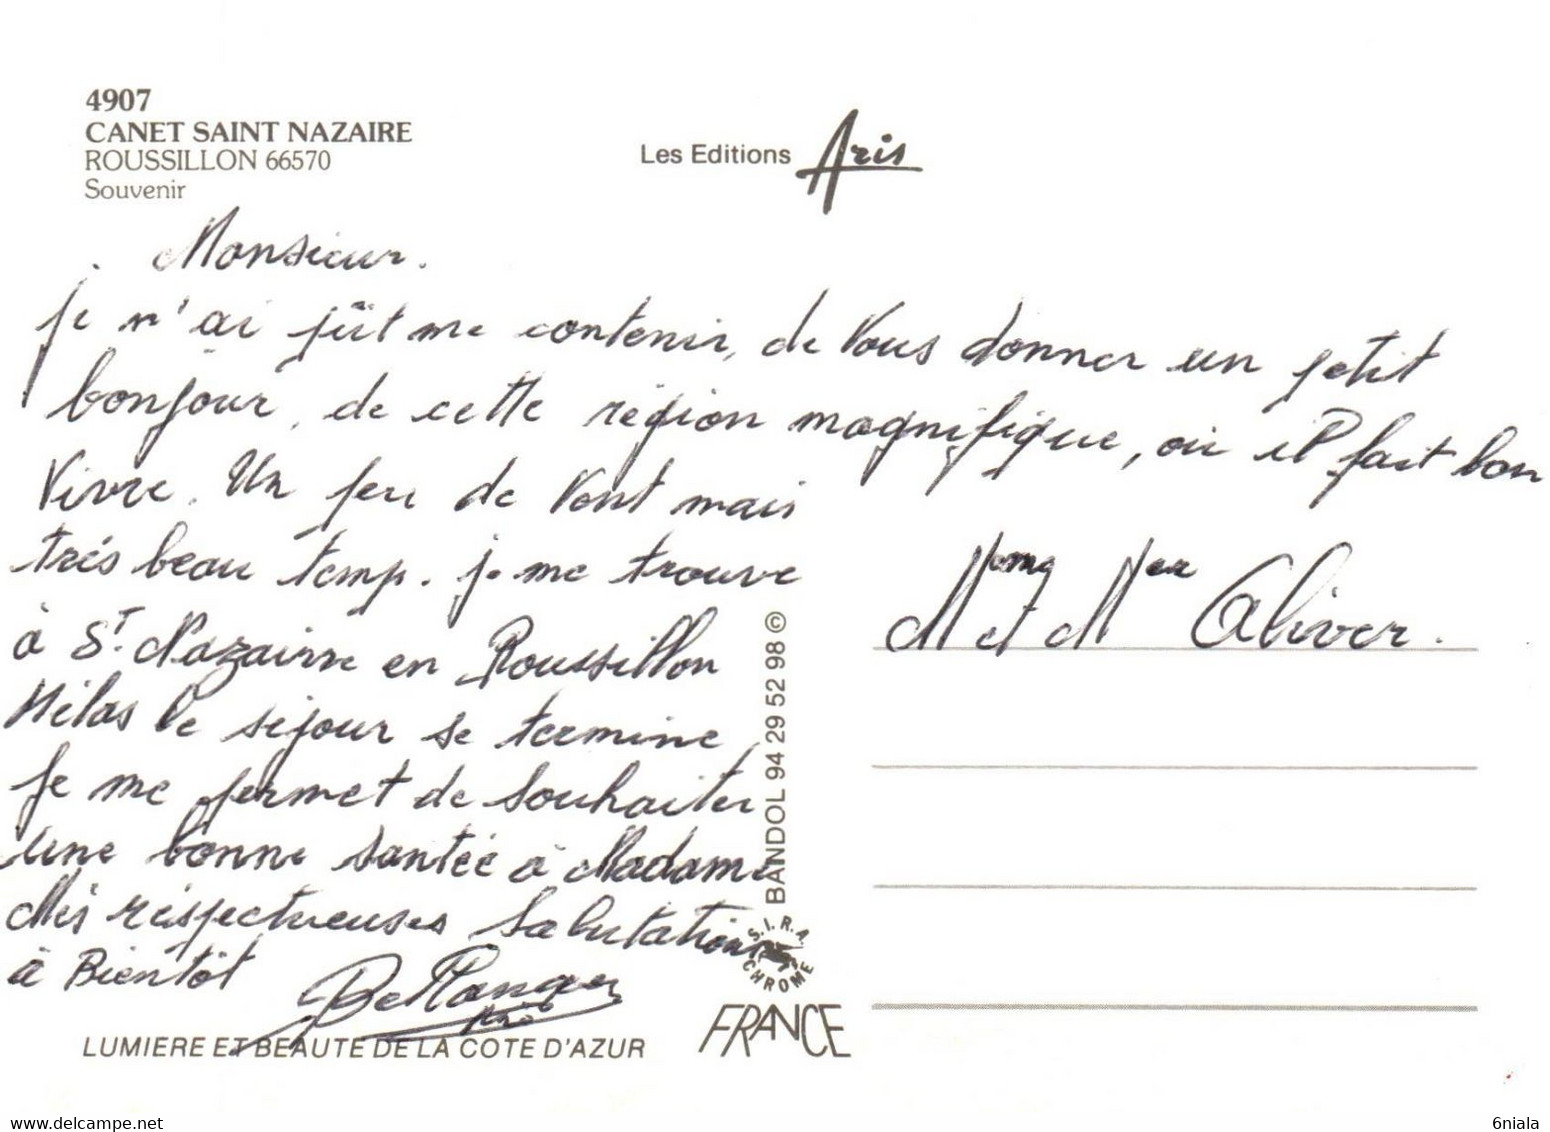 4907
CANET SAINT NAZAIRE
ROUSSILLON 66570
Souvenir
Les Editions Aris
Monsieur.
je n'ai pût me contenir, de Vous donner un petit
bonjour, de cette région magnifique, où il fait bon
Vivre. Un peu de Vent mais
trés beau temp. je me trouve
à St. Nazairre en Roussillon
Hélas le séjour se termine,
je me permet de Souhaiter
une bonne santée à Madame
Més réspectueuses Salutations
à Bientôt Bellanger
M et M Oliver.
BANDOL 94 29 52 98 ©
S.I.R.A.
CHROME
FRANCE
LUMIERE ET BEAUTE DE LA COTE D'AZUR
delcampe.net
6niala